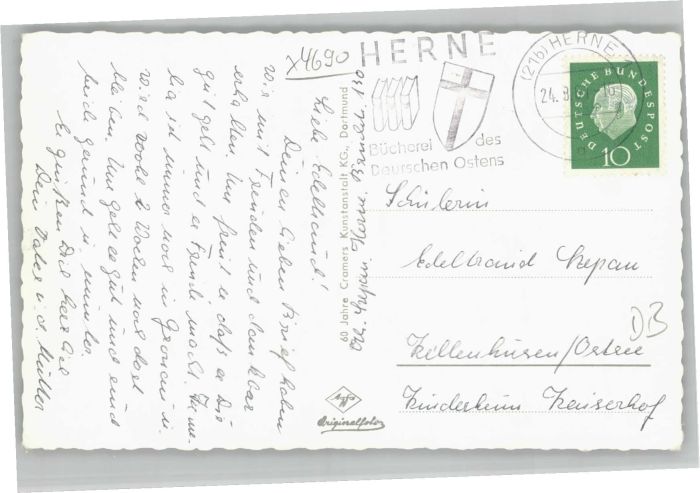 x4690
Liebe Edeltraud!
Deinen lieben Brief haben
wir mit Freuden und dankbar
erhalten. Uns freut es daß es Dir
gut geht und es Freude macht.
ist immer noch in
wird wohl 2 Wochen noch dort
bleiben. Uns geht es gut und sind
auch gesund u. munter.
Es grüßen Dich herzlich
Dein Vater u. d. Mutter
60 Jahre Cramers Kunstanstalt KG., Dortmund
Agfa
Originalfoto
HERNE
Bücherei des
Deutschen Ostens
(21b) HERNE
24.
DEUTSCHE BUNDESPOST
10
Schülerin
Edeltraud Stepan
DB
Kellenhusen/Ostsee
Kinderheim Kaiserhof